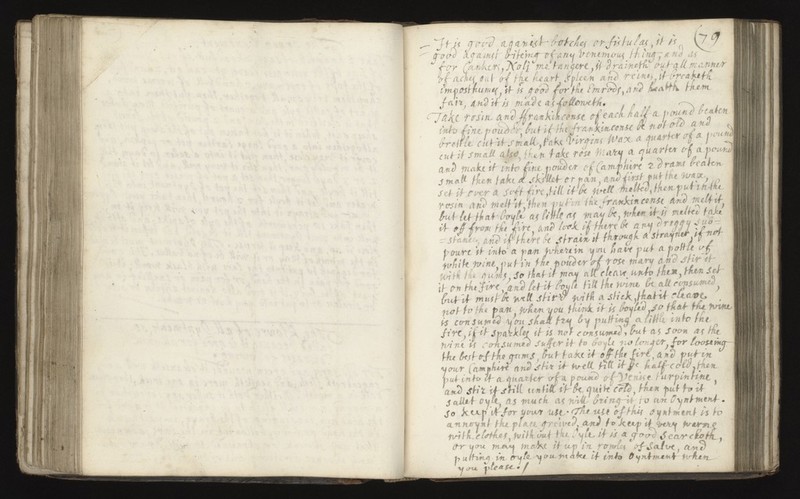 79
It is good against botches or fistulas, it is
good against biteing of any venemous thing; and as
for Cankers, Nolj me tangere, it draineth out all manner
of aches, out of the heart, spleen and reines, it breaketh
Imposthumes, it is good for the Emrods, and health them
fair, and it is made as followeth.
Take rosin and ffrankinconse of each half a pound beaten
into fine pouder, but if the frankinconse be not old and
brittle cut it small, take Virgine Wax a quarter of a pound
cut it small also, then take rose mary a quarter of a pound
and make it into fine pouder of Camphire 2 drams beaten
small then take a skillet or pan, and first put the wax,
set it over a soft fire, till it be well melted, then put in the
rosin and melt it, then put in the frankinconse and melt it,
but let that boyle as little as may be, when it is melted take
it off from the fire, and look if there be any dreggy sub=
=stance, and if there be strain it through a strayner, if not
poure it into a pan wherein you have put a pottle of
white wine, put in the pouder of rose mary and stir it
with the gums, so that it may all cleave unto them, then set
it on the fire, and let it boyle till the wine be all consumed,
but it must be well stir'd with a stick, that it cleave
not to the pan, when you think it is boyled, so that the wine
is consumed you shall try by putting a little into the
fire, if it sparkles it is not consumed, but as soon as the
wine is consumed suffer it to boyle no longer, for looseing
the best of the gums, but take it off the fire, and put in
your Camphire and stir it well till it be half cold, then
put into it a quarter of a pound of Venice Turpintine,
and stir it still untill it be quite cold, then put to it
sallet oyle, as much as will bring it to an Oyntment.
So keep it for your use. The use of this oyntment is to
annoynt the place greived, and to keep it very warme
with clothes, with out the oyle it is a good Scarcloth,
or you may make it up in rowls of Salve, and
putting in oyle you make it into Oyntment when
you please.